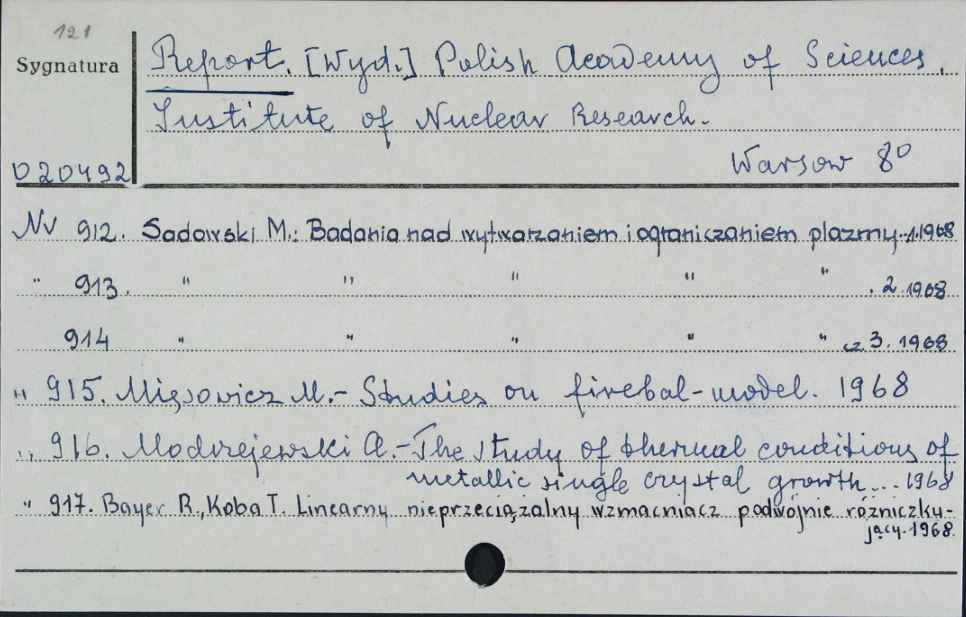 121
Sygnatura
Report. [Wyd.] Polish Academy of Sciences.
Institute of Nuclear Research.
D20492
Warsow 8°
Nr 912. Sadowski M.: Badania nad wytwarzaniem i ograniczaniem plazmy. 1. 1968
" 913. " " " " " . 2. 1968
914 " " " " " cz 3. 1968
" 915. Mięsowicz M. - Studies on firebal-model. 1968
" 916. Modrzejewski A. - The study of thermal conditions of
metallic single crystal growth... 1968
" 917. Bayer R., Koba T. Linearny nieprzeciążalny wzmacniacz podwójnie różniczku-
jący. 1968.